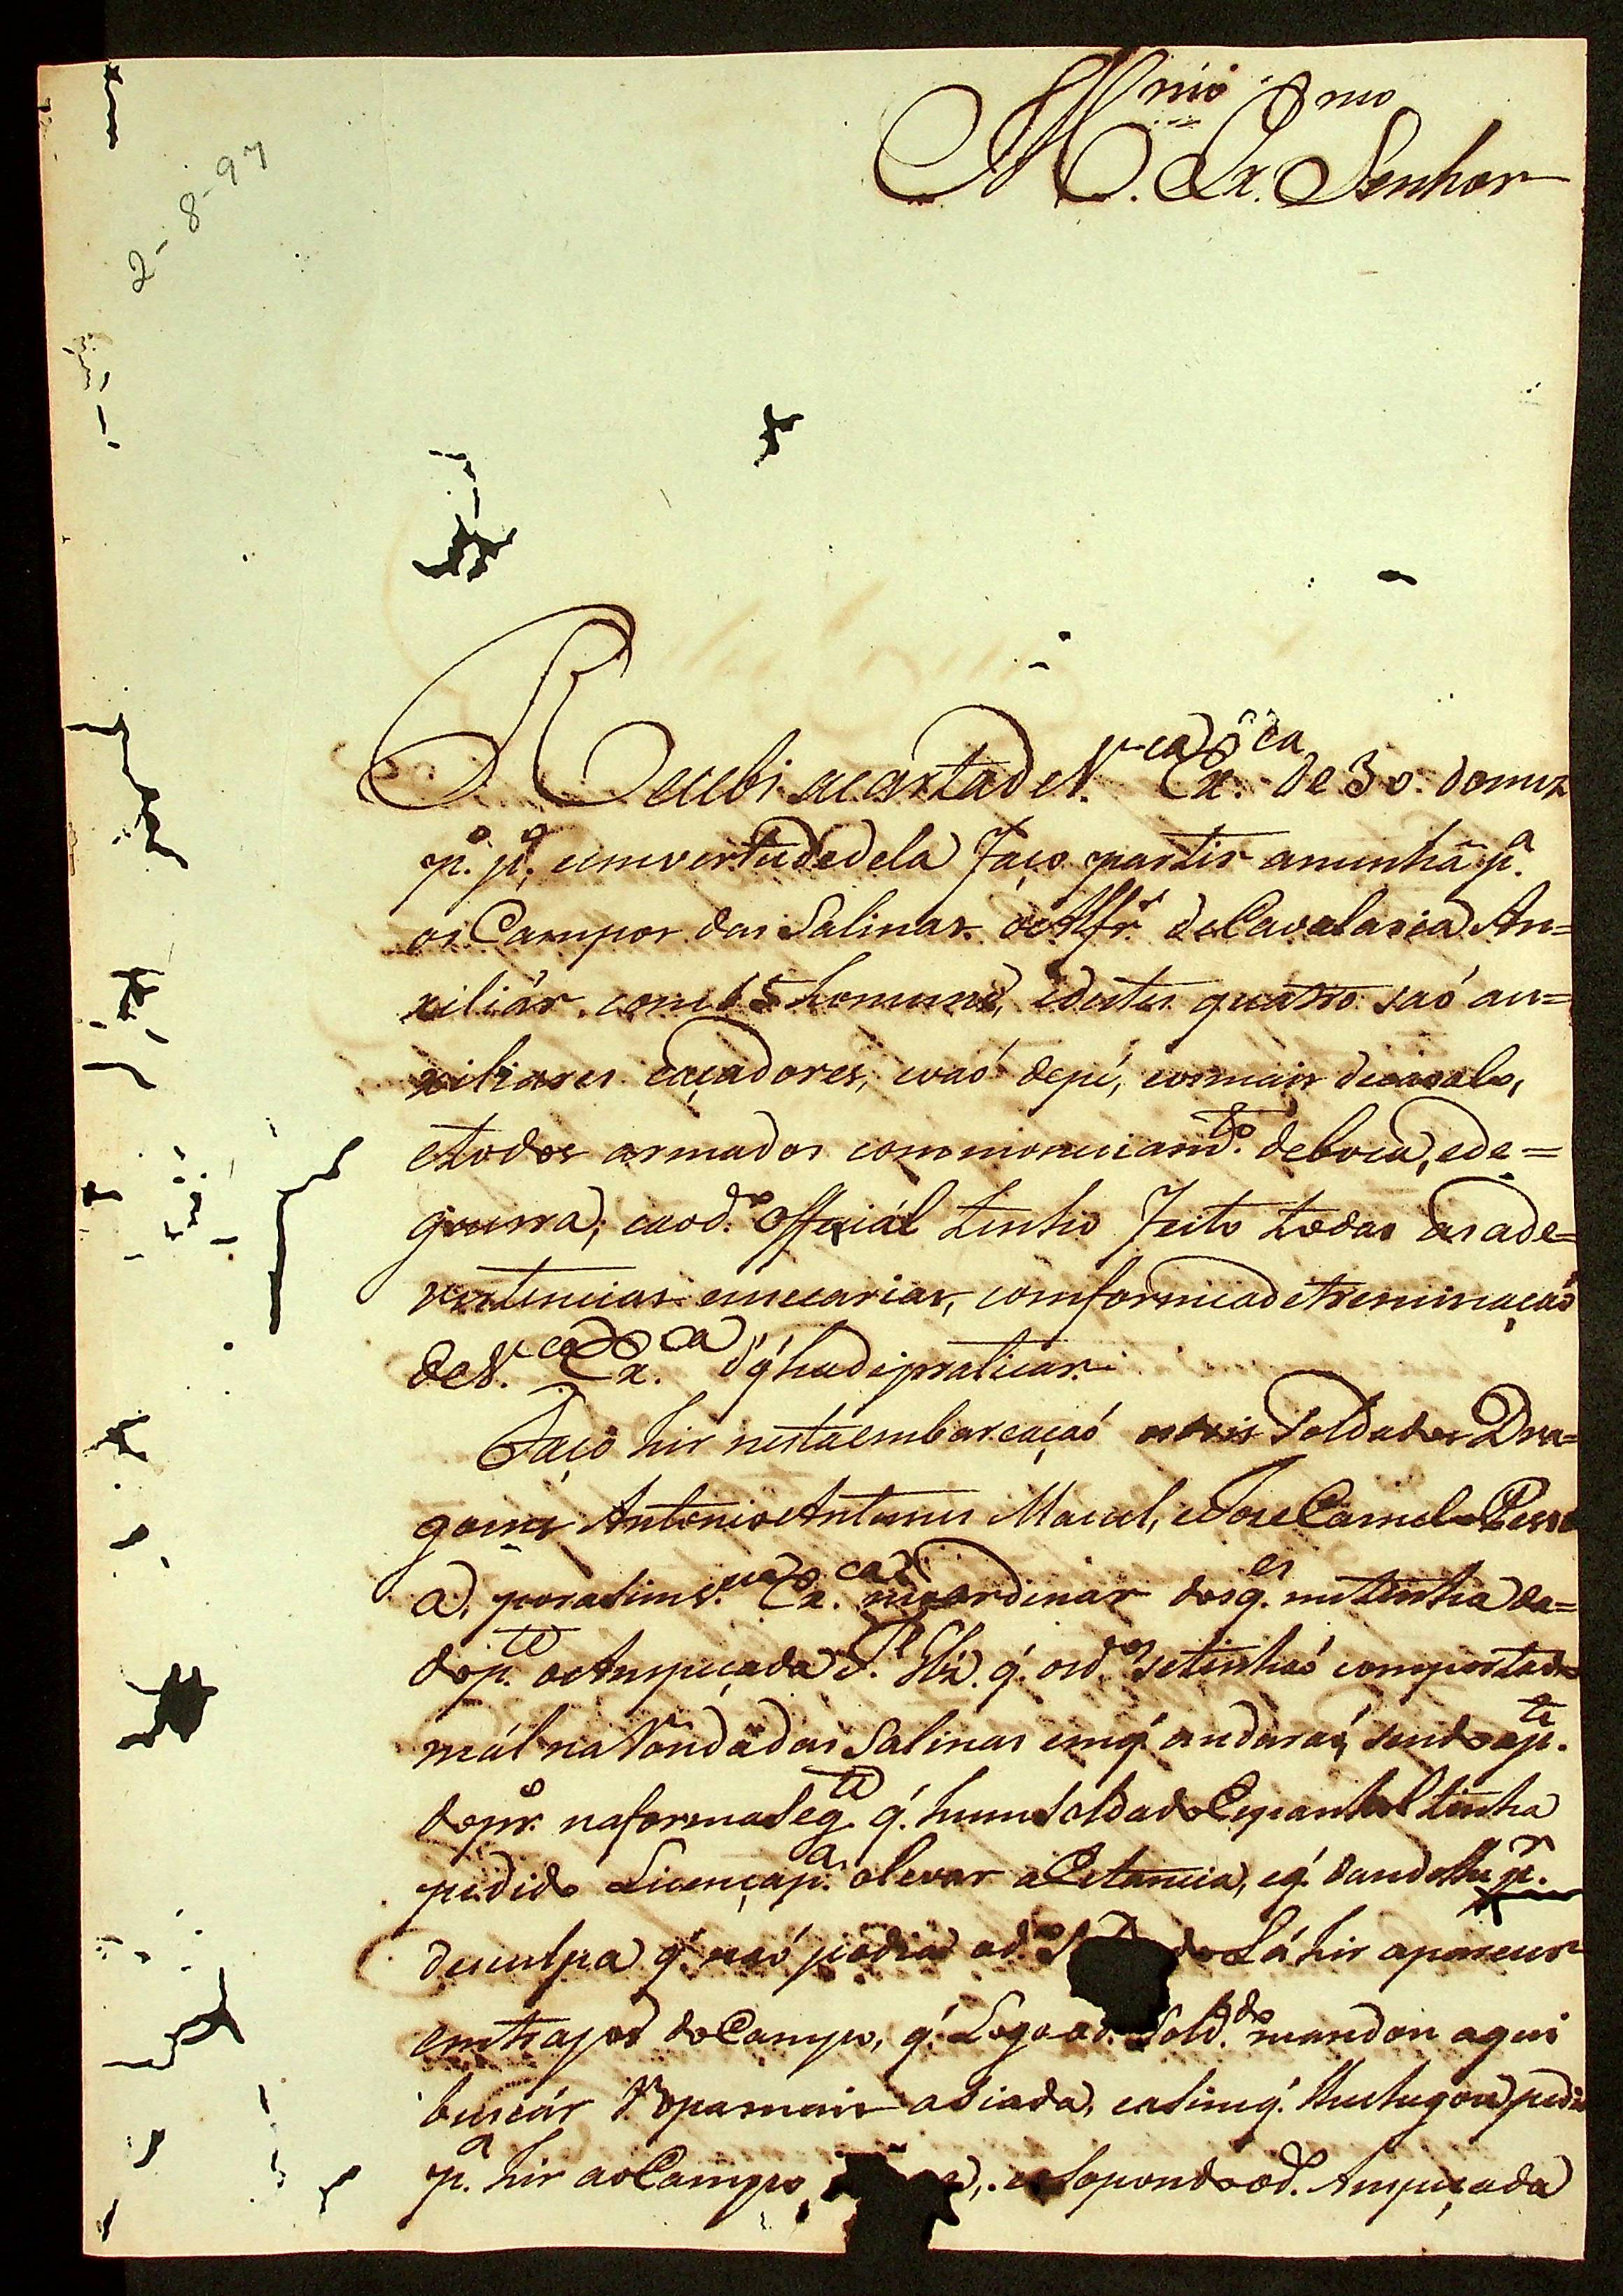 2-8-97
Ill.mo Ex.mo Senhor
Recebi a carta de V.ca Ex.ca de 30. do mez
p.o p.o, e em vertude dela Faço partir amenhã p.a
os Campos das Salinas o Alfr.s de Cavalaria Au=
xiliár, com 15 homens, e destes quatro saó au=
xiliares caçadores, e vaó de pé, e os mais de cavalo,
e todos armados com moneciam.to de boca, e de=
guerra, e ao d.o Official tenho Feito todas as ade=
vertencias necearias, comforme a detreminaçaó
de V.ca Ex.ca q' hade praticar.
Faço hir nesta embarcaçaó os dois Soldados Dra=
goens Antonio Antunes Maciel, e Jose Camelo Pesso
a, por asim V.ca Ex.ca me ordenar dos q.es me tinha da=
do p.te o Anspeçada q' os d.os se tinhaó comportado
mál na Ronda das Salinas em q' andaraó, sendo a p.te
do pr.o na forma seg.te q' hum Soldado Espanhol tinha
pedido Licença p.a o levar a Estancia, e q' dandolhe p.r
desculpa q' naó podia o d.o do Lá hir aparecer
em trajes do Campo, q' Logo o d.o Sold.do mandou aqui
buscár Ropa mais asiada, e asim q' lhe chegou pedio
p.a hir ao Campo e Sopondo o d.o Anspeçada